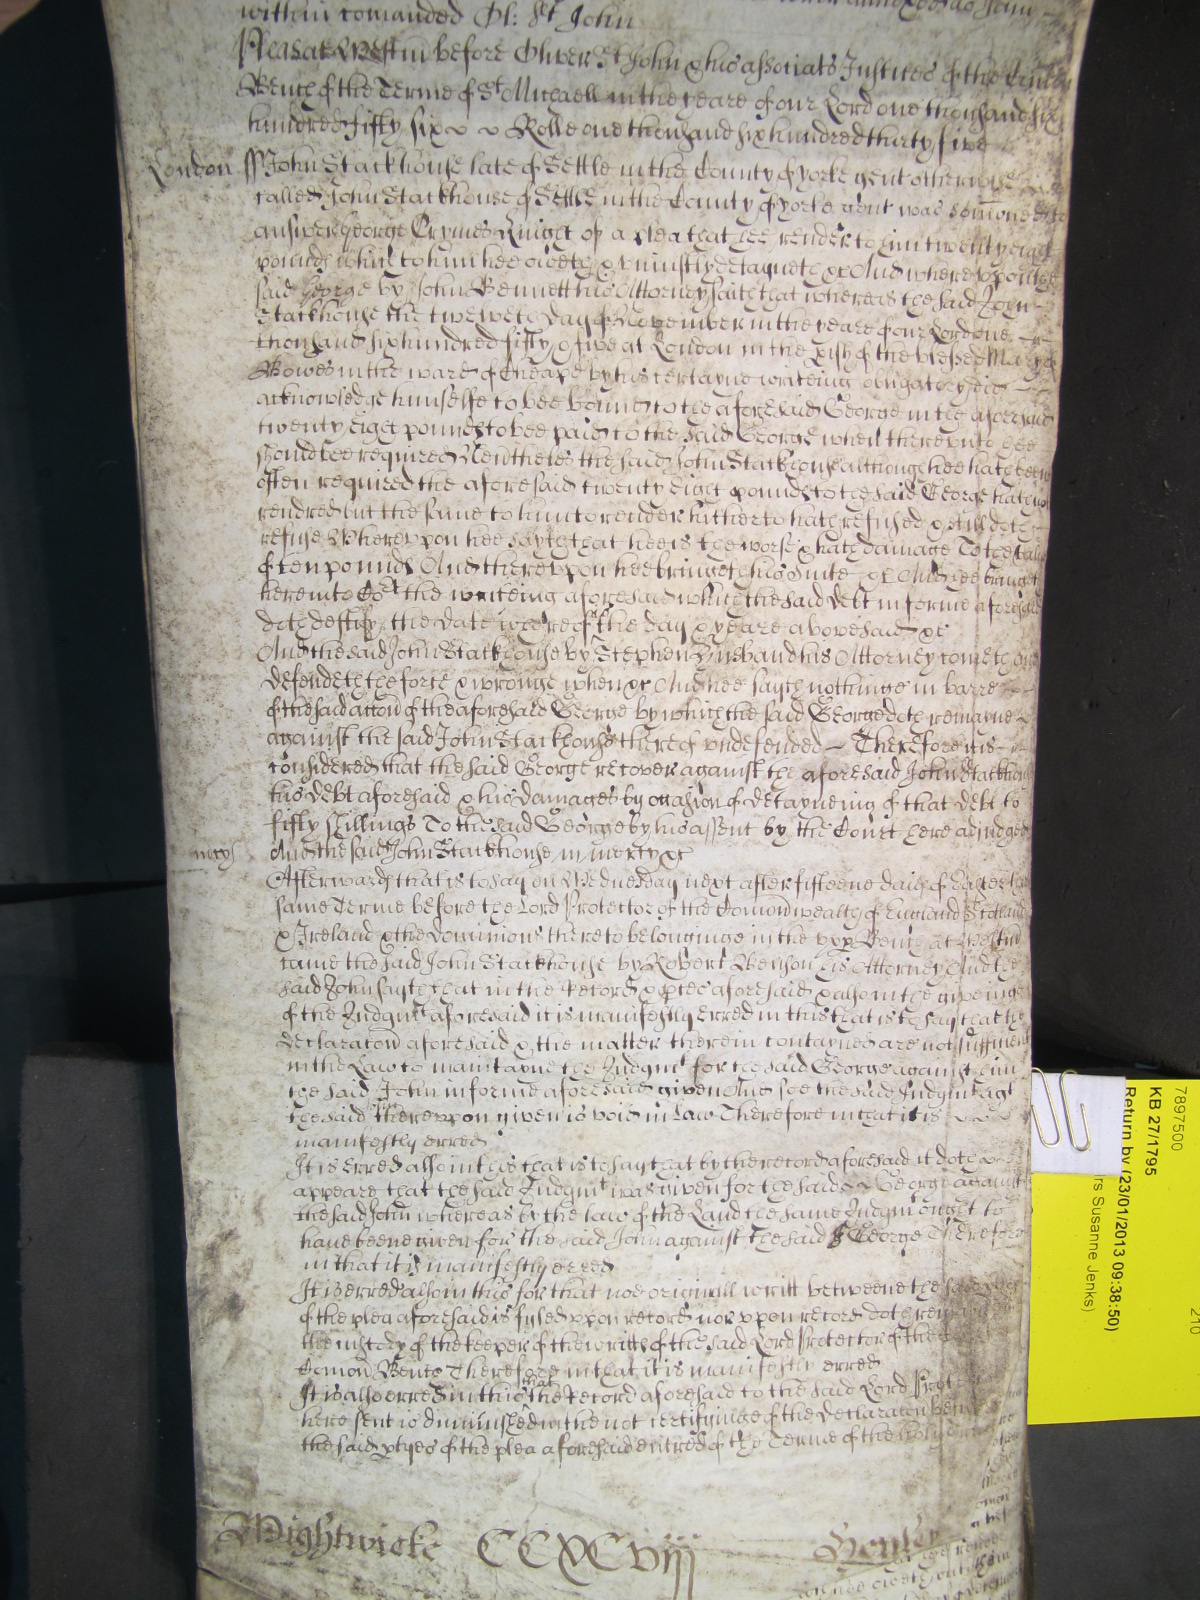 within comanded Ol: St John
Pleas at Westm before Oliver St John & his associats Justices of the Comon
Bench of the Terme of St Michaell in the yeare of our Lord one thousand six
hundred fifty six Rolle one thousand six hundred thirty five
London ss John Stackhouse late of Settle in the County of yorke gent otherwise
called John Stackhouse of Settle in the County of yorke gent was somoned to
answer George Crymes Knight of a plea that hee render to him twenty eight
pounds which to him hee oweth & uniustly detayneth &c And whereupon the
said George by John Bennett his Attorney saith that whereas the said John
Stackhouse the twelveth day of November in the yeare of our Lord one
thousand six hundred fifty & five at London in the pish of the blessed Mary of
Bowes in the ward of Cheape by his certayne writeing obligatory did
acknowledge himselfe to bee bound to the aforesaid George in the aforesaid
twenty eight pounds to bee paid to the said George when thereunto hee
should bee required Nevtheles the said John Stackhouse although hee hath been
often required the aforesaid twenty eight pounds to the said George hath not
rendred but the same to him to render hitherto hath refused & still doth
refuse Whereupon hee sayth that hee is the worse & hath damage To the value
of ten pounds And thereupon hee bringeth his suite &c And hee bringeth
here into Cort the writeing aforesaid which the said debt in forme aforesaid
doth testify the date whereof is the day & yeare abovesaid &c
And the said John Stackhouse by Stephen Husband his Attorney cometh and
defendeth the force & wronge when &c And hee sayth nothinge in barre
of the said accon of the aforesaid George by which the said George doth remayne
against the said John Stackhouse thereof undefended Therefore it is
considered that the said George recover against the aforesaid John Stackhouse
his debt aforesaid & his damages by occasion of detayneing of that debt to
fifty shillings To the said George by his assent by the Court here adiudged
mcy And the said John Stackhouse in mercy &c
Afterwards that is to say on Wednesday next after fifteene daies of Easter the
same Terme before the Lord Protector of the Comonwealth of England Scotland
& Ireland & the dominions thereto belonginge in the upp Bench at Westm
came the said John Stackhouse by Robert Benson his Attorney And the
said John sayth that in the Record & pces aforesaid & also in the giveinge
of the Judgmt aforesaid it is manifestly erred in this that is to say that the
declaracon aforesaid & the matter therein contayned are not sufficient
in the Law to maintayne the Judgmt for the said George against him
the said John in forme aforesaid given And soe the said Judgmt agt
the said John thereupon given is void in Law Therefore in that it is
manifestly erred
It is erred also in this that is to say that by the record aforesaid it doth
appeare that the said Judgmt was given for the said George against
the said John whereas by the law of the Land the same Judgmt ought to
have beene given for the said John against the said George Therefore
in that it is manifestly erred
It is erred also in this for that noe originall writt betweene the said
of the plea aforesaid is fyled upon record nor upon record doth remayne
the custody of the keeper of the writts of the said Lord Protector of the
Comon Bench Therefore in that it is manifestly erred
It is also erred in this that the Record aforesaid to the said Lord Protector
here sent is diminished in the not certifyinge of the declaracon betw
the said ptyes of the plea aforesaid entred of the Terme of the holy
Wightwicke CCXCviij Henley
7897500
KB 27/1795
Return by (23/01/2013 09:38:50)
rs Susanne Jenks)
210